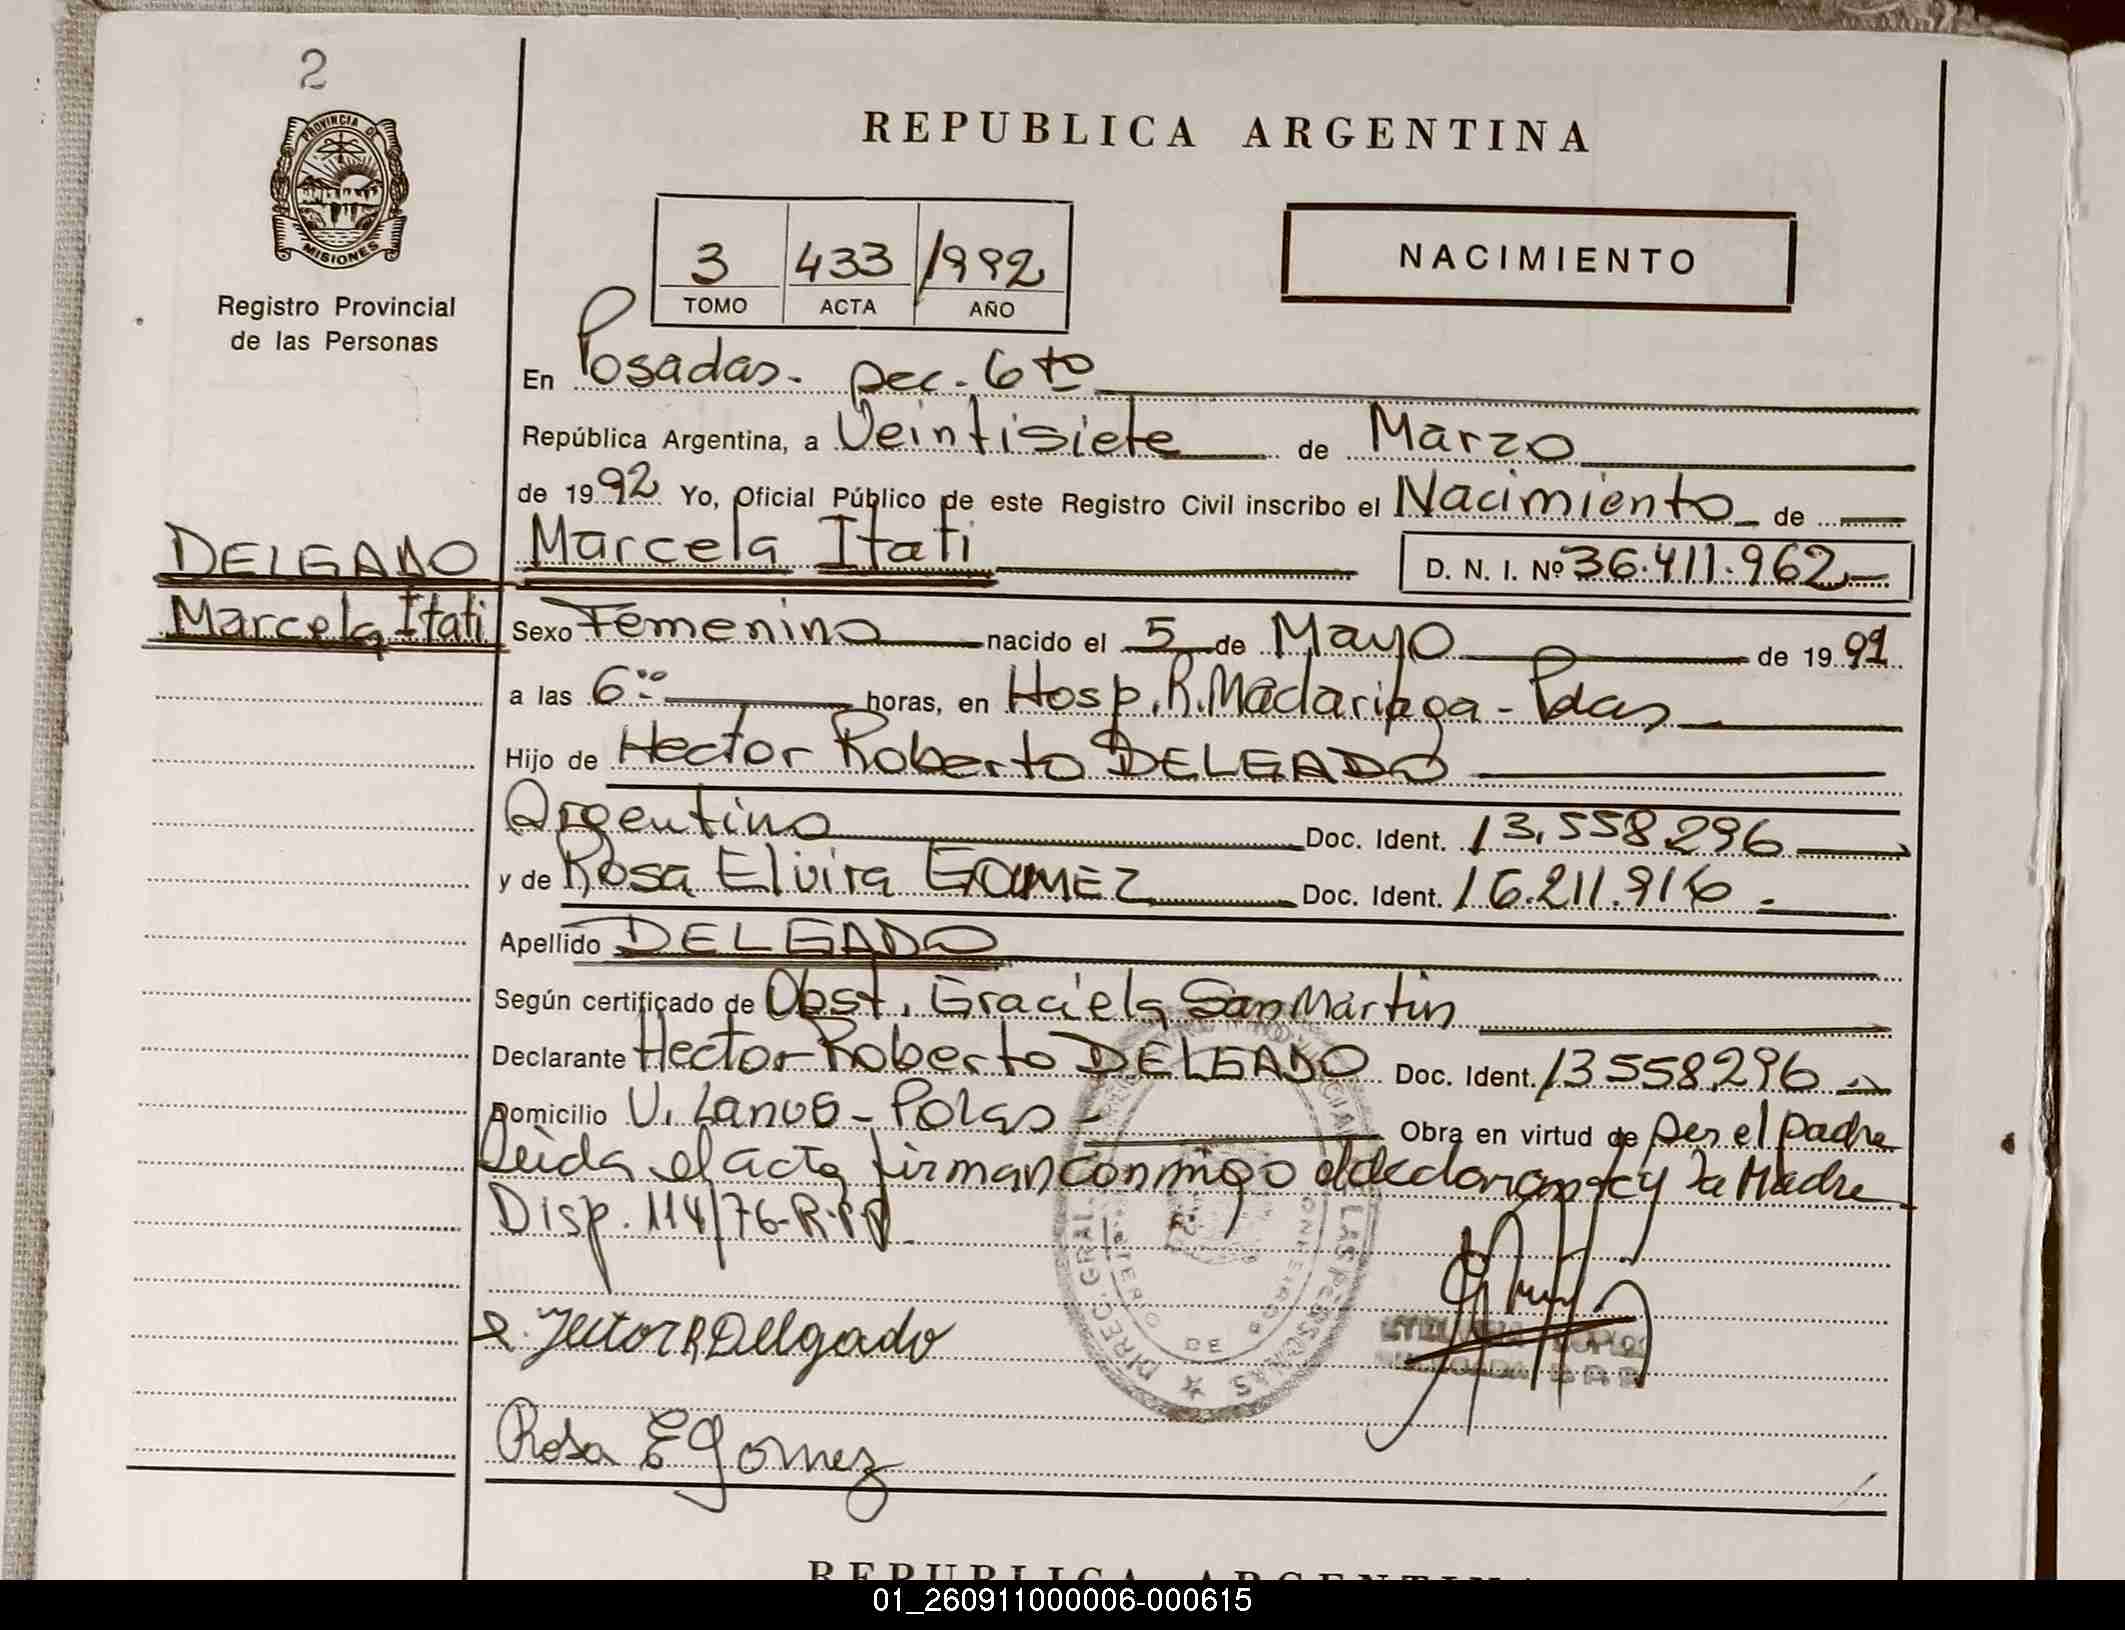 2
PROVINCIA DE
MISIONES
Registro Provincial
de las Personas
REPUBLICA ARGENTINA
3 433 1992
TOMO ACTA AÑO
NACIMIENTO
En Posadas. Sec. 6to
República Argentina, a Veintisiete de Marzo
de 1992 Yo, Oficial Público de este Registro Civil inscribo el Nacimiento de
DELGADO
Marcela Itati
Marcela Itati D. N. I. Nº 36.411.962
Sexo Femenino nacido el 5 de Mayo de 1991
a las 6:00 horas, en Hosp. R. Madariaga - Pdas
Hijo de Hector Roberto DELGADO
Argentino Doc. Ident. 13.558.296
y de Rosa Elvira GOMEZ Doc. Ident. 16.211.916
Apellido DELGADO
Según certificado de Obst. Graciela San Martin
Declarante Hector Roberto DELGADO Doc. Ident. 13558296
Domicilio V. Lanus - Pdas - Obra en virtud de ser el padre
Leida el acta firman conmigo el declarante y la Madre
Disp. 114/76-R.P.P.
Hector R Delgado
Rosa E Gomez
DIREC. GRAL. LAS PERSONAS
REPUBLICA ARGENTINA
01_260911000006-000615